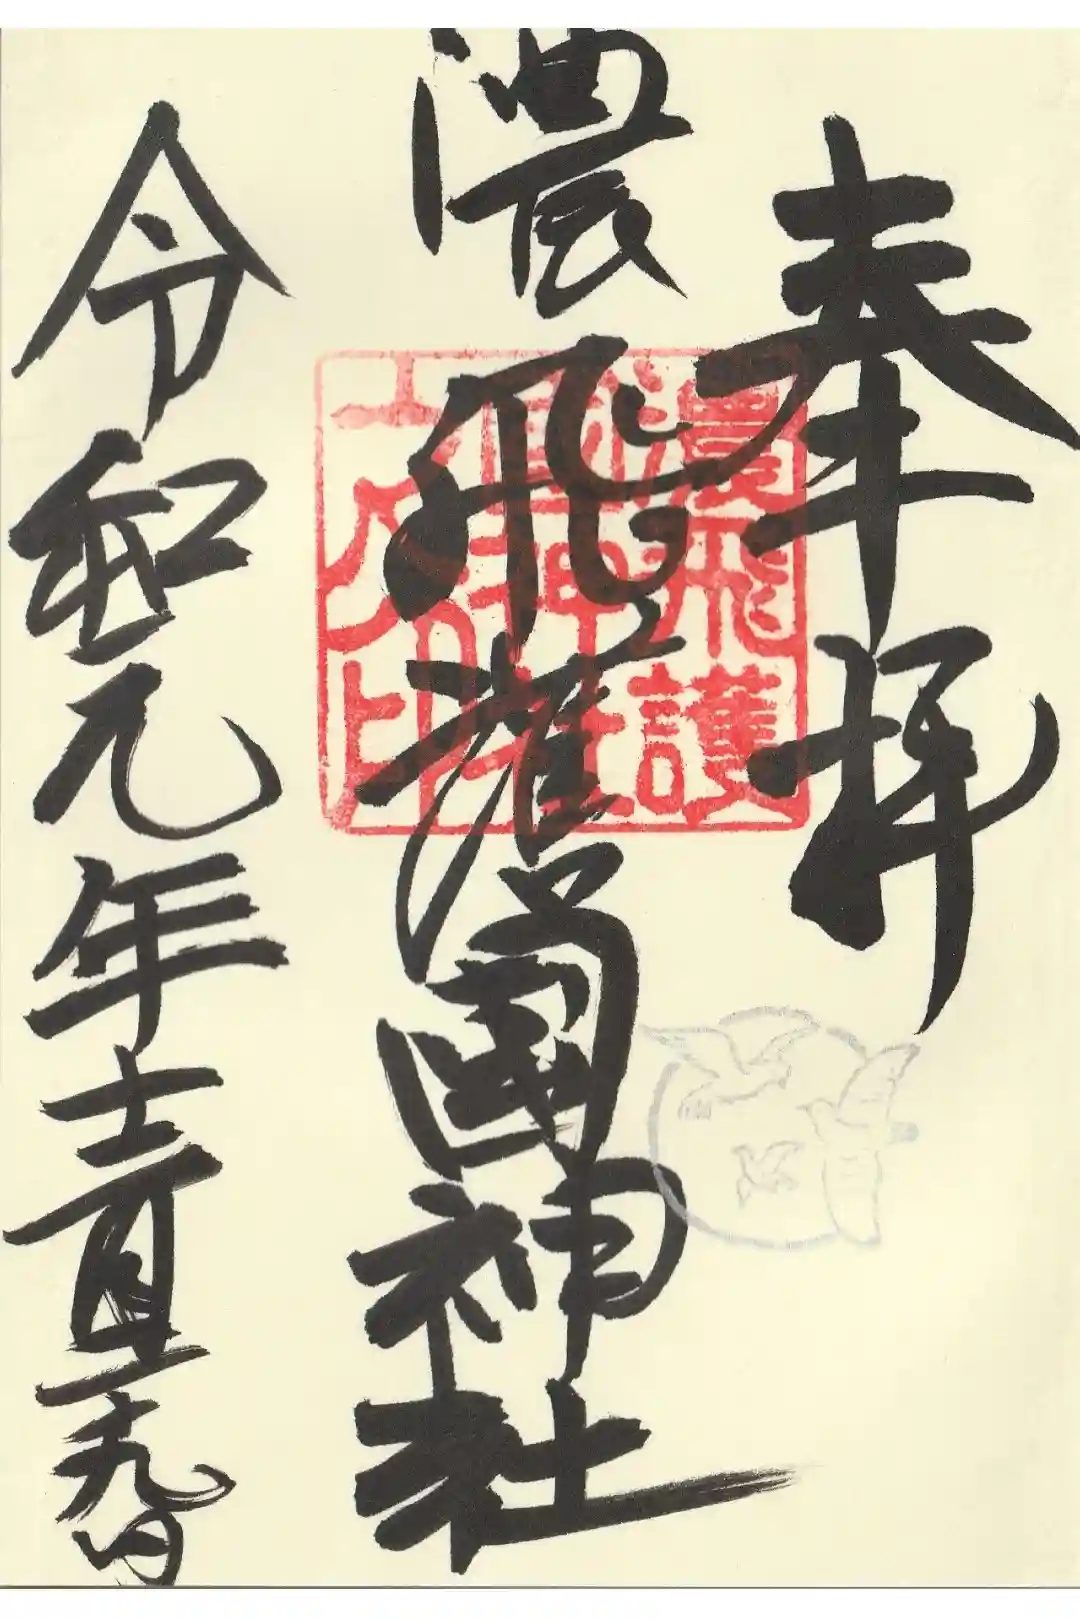 奉拝
濃飛護國神社
令和元年十二月二十九日
濃飛護
國神社